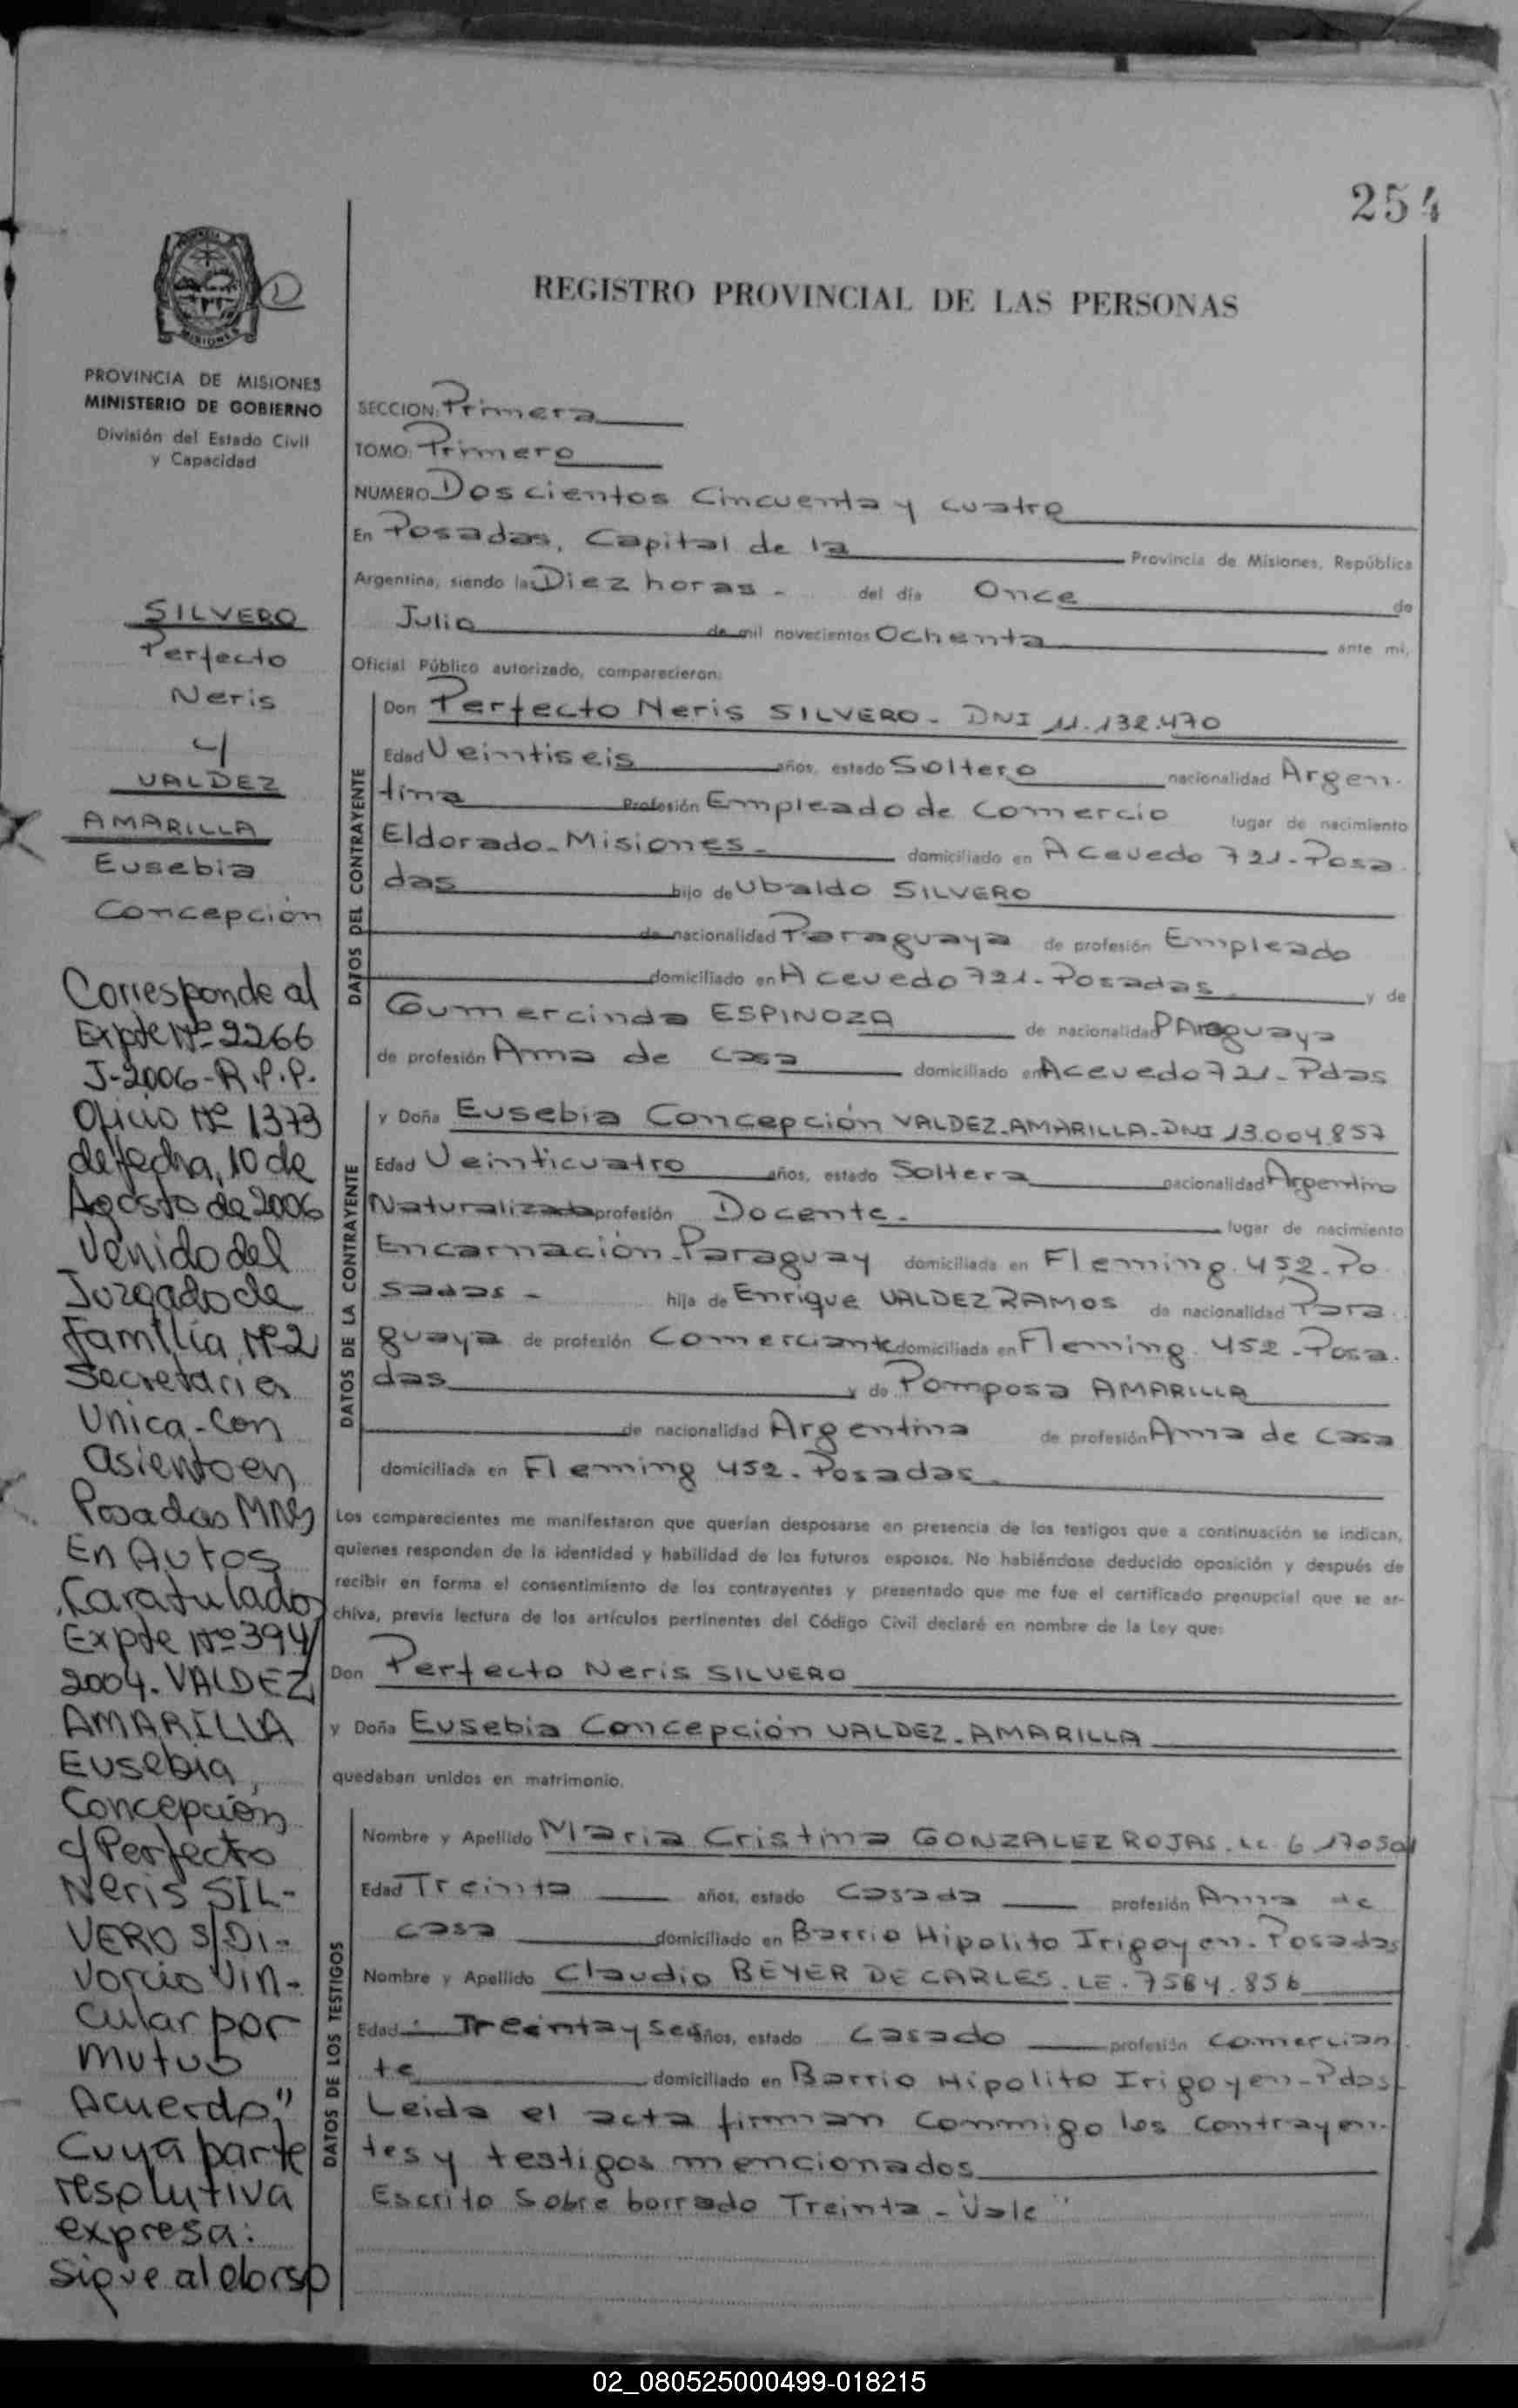 254
REGISTRO PROVINCIAL DE LAS PERSONAS
MISIONES
PROVINCIA DE MISIONES
MINISTERIO DE GOBIERNO
División del Estado Civil
y Capacidad
SILVERO
Perfecto
Neris
y
VALDEZ
AMARILLA
Eusebia
Concepción
Corresponde al
Expte Nº 2266
J-2006-R.P.P.
Oficio Nº 1373
de fecha, 10 de
Agosto de 2006
Venido del
Juzgado de
Familia Nº2
Secretaria
Unica-Con
asiento en
Posadas MNES
En Autos
Caratulado
Expte Nº 394/
2004. VALDEZ
AMARILLA
Eusebia
Concepción
c/ Perfecto
Neris SIL-
VERO S/DI-
vorcio Vin-
cular por
mutuo
Acuerdo"
Cuya parte
resolutiva
expresa:
Sigue al dorso
SECCION: Primera
TOMO: Primero
NUMERO Doscientos Cincuenta y cuatro
En Posadas, Capital de la Provincia de Misiones, República
Argentina, siendo las Diez horas - del día Once de
Julio de mil novecientos Ochenta ante mi,
Oficial Público autorizado, comparecieron:
DATOS DEL CONTRAYENTE
Don Perfecto Neris SILVERO - DNI 11.132.470
Edad Veintiseis años, estado Soltero nacionalidad Argen-
tina Profesión Empleado de Comercio lugar de nacimiento
Eldorado - Misiones - domiciliado en Acevedo 721 - Posa
das hijo de Ubaldo SILVERO
de nacionalidad Paraguaya de profesión Empleado
domiciliado en Acevedo 721 - Posadas y de
Gumercinda ESPINOZA de nacionalidad PAraguaya
de profesión Ama de casa domiciliado en Acevedo 721 - Pdas
DATOS DE LA CONTRAYENTE
y Doña Eusebia Concepción VALDEZ-AMARILLA-DNI 13.004.857
Edad Veinticuatro años, estado Soltera nacionalidad Argentina
Naturalizada profesión Docente - lugar de nacimiento
Encarnación-Paraguay domiciliada en Fleming 452 - Po
sadas - hija de Enrique VALDEZ RAMOS de nacionalidad Para
guaya de profesión Comerciante domiciliada en Fleming 452 - Posa.
das y de Pomposa AMARILLA
de nacionalidad Argentina de profesión Ama de casa
domiciliada en Fleming 452 - Posadas
Los comparecientes me manifestaron que querían desposarse en presencia de los testigos que a continuación se indican,
quienes responden de la identidad y habilidad de los futuros esposos. No habiéndose deducido oposición y después de
recibir en forma el consentimiento de los contrayentes y presentado que me fue el certificado prenupcial que se ar-
chiva, previa lectura de los artículos pertinentes del Código Civil declaré en nombre de la Ley que:
Don Perfecto Neris SILVERO
y Doña Eusebia Concepción VALDEZ-AMARILLA
quedaban unidos en matrimonio.
DATOS DE LOS TESTIGOS
Nombre y Apellido Maria Cristina GONZALEZ ROJAS. LC 6 170501
Edad Treinta años, estado Casada profesión Ama de
casa domiciliado en Barrio Hipolito Irigoyen - Posadas
Nombre y Apellido Claudio BEYER DE CARLES. LE. 7584.856
Edad Treinta y seis años, estado Casado profesión comercian
te domiciliado en Barrio Hipolito Irigoyen - Pdas
Leida el acta firman conmigo los contrayen-
tes y testigos mencionados
Escrito Sobre borrado Treinta - Vale"
02_080525000499-018215